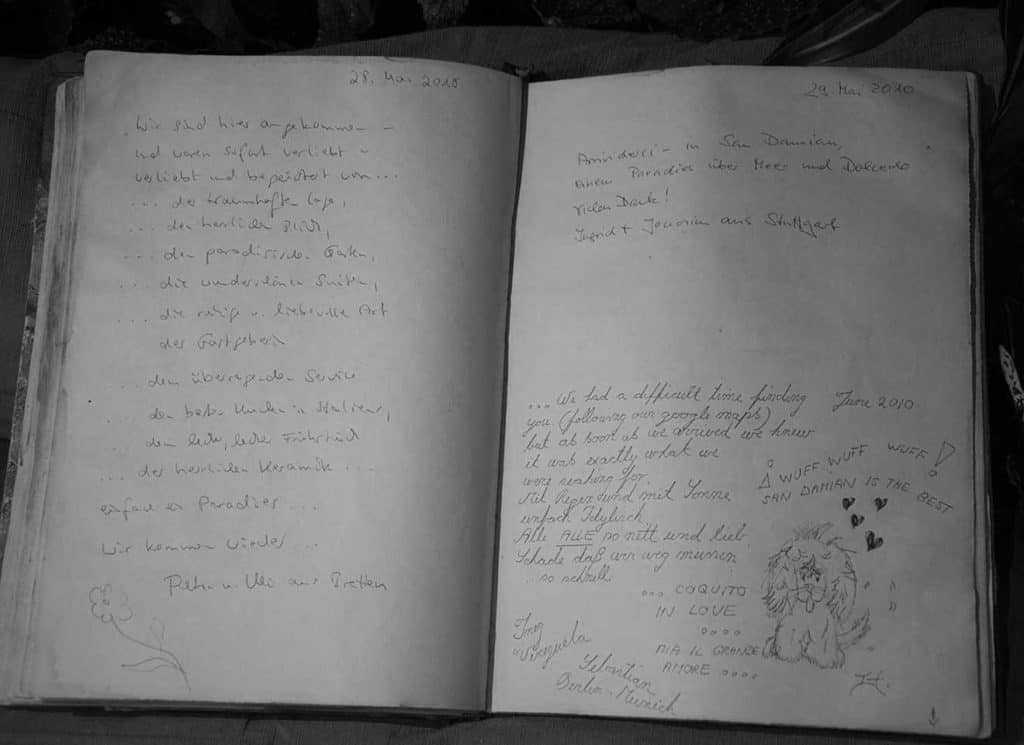 28. Mai 2010
Wir sind hier angekommen –
und waren sofort verliebt –
verliebt und begeistert von ...
... der traumhaften Lage,
... den herrlichen Blick,
... dem paradisischen Garten,
... die wunderschönen Suiten,
... die ruhige u. liebevolle Art
der Gastgeberin
... dem überragenden Service
... den besten Kuchen in Italiens,
dem leck, lecke Frühstück
... der herrlichen Keramik ...
einfach ein Paradies ...
Wir kommen wieder ...
u. Uli aus Bretten
29. Mai 2010
in San Damian,
einem Paradies über Meer und
vielen Dank!
Ingrid + aus Stuttgart
... We had a difficult time finding
you. (following our google maps)
June 2010
but as soon as we arrived we knew
it was exactly what we
were wishing for.
Mit Regen und mit Sonne
einfach Idylisch
Alle ALLE so nett und lieb
Schade daß wir weg müssen
... so schnell
WUFF WUFF WUFF!
SAN DAMIAN IS THE BEST
... COQUITO
IN LOVE
....
MIA IL GRANDE
AMORE ....
Venezuela
Sebastian
Berlin - Munich